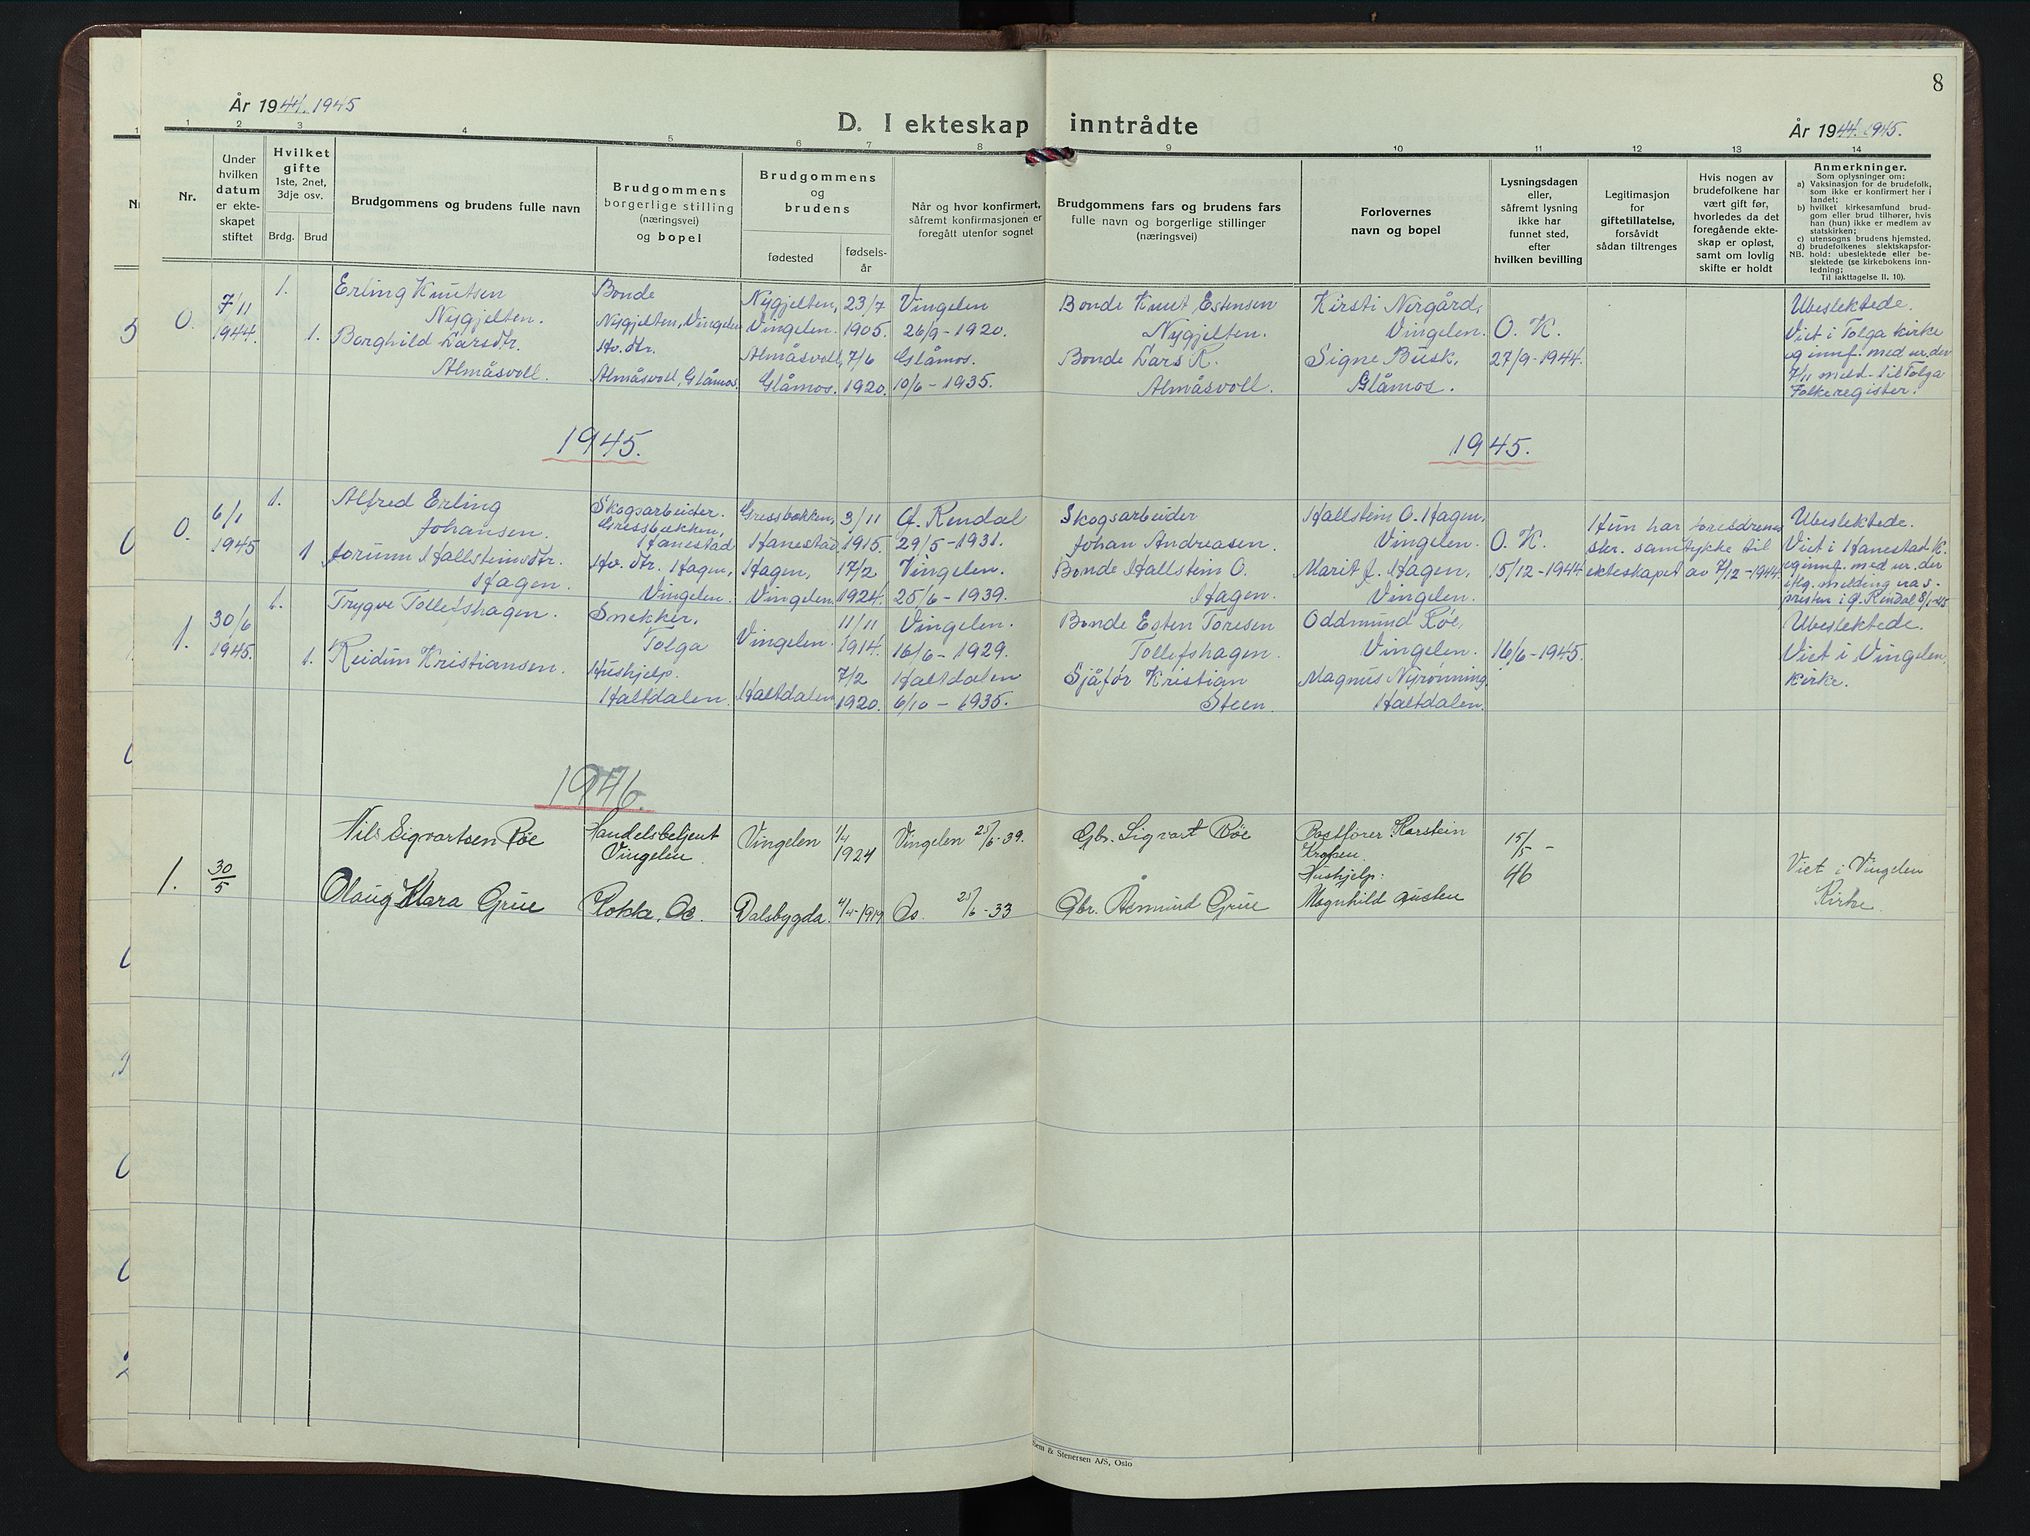 8
År 1944. 1945
D. I ekteskap inntrådte
År 1944. 1945.
1 2 3 4 5 6 7 8 9 10 11 12 13 14
Nr.
Under hvilken datum er ekteskapet stiftet
Hvilket gifte 1ste, 2net, 3dje osv.
Brdg. Brud
Brudgommens og brudens fulle navn
Brudgommens borgerlige stilling (næringsvei) og bopel
Brudgommens og brudens
fødested
fødselsår
Når og hvor konfirmert, såfremt konfirmasjonen er foregått utenfor sognet
Brudgommens fars og brudens fars fulle navn og borgerlige stillinger (næringsvei)
Forlovernes navn og bopel
Lysningsdagen eller, såfremt lysning ikke har funnet sted, efter hvilken bevilling
Legitimasjon for giftetillatelse, forsåvidt sådan tiltrenges
Hvis nogen av brudefolkene har vært gift før, hvorledes da det foregående ekteskap er opløst, samt om lovlig skifte er holdt
Anmerkninger.
Som oplysninger om:
a) Vaksinasjon for de brudefolk, som ikke er konfirmert her i landet;
b) hvilket kirkesamfund brudgom eller brud tilhører, hvis han (hun) ikke er medlem av statskirken;
c) utensogns brudens hjemsted.
d) brudefolkenes slektskapsforhold: ubeslektede eller beslektede (se kirkebokens innledning;
NB.
Til iakttagelse II. 10).
0. 7/11 1944. 1. Erling Knutsen Nygjelten. Bonde Nygjelten, Vingelen Nygjelten, Vingelen. 23/7 1905. Vingelen 26/9-1920. Bonde Knut Estensen Nygjelten. Kirsti Norgård, Vingelen. O. K. Ubeslektede.
1. Borghild Larsdtr. Almåsvoll. Hv. dtr. Almåsvoll, Glåmos. Almåsvoll, Glåmos. 7/6 1920. Glåmos. 10/6-1935. Bonde Lars K. Almåsvoll. Signe Busk, Glåmos. 27/9-1944. Viet i Tolga kirke og innf. med ur. der 7/11 meld. til Tolga Folkeregister.
1945. 1945.
0. 6/1 1945 1. Alfred Erling Johansen. Skogsarbeider. Gressbekken, Hanestad Gressbekken, Hanestad 3/11 1915. Ø. Rendal 29/5-1931. Skogsarbeider Johan Andreasen. Hallstein O. Hagen, Vingelen. O. K. Hun har foreldrenes skr. samtykke til ekteskapet av 7/12-1944. Ubeslektede.
1 Jorunn Hallsteinsdtr. Hagen. Hv. dtr. Hagen, Vingelen. Hagen, Vingelen. 17/2 1924. Vingelen. 25/6-1939. Bonde Hallstein O. Hagen. Marit J. Hagen, Vingelen. 15/12-1944 Viet i Hanestad K. og innf. med ur. der ikg. melding fra s-presten i Ø. Rendal 8/1-45
1. 30/6 1945. 1. Trygve Tollefshagen. Snekker, Tolga Vingelen. 11/11 1914. Vingelen. 16/6-1929. Bonde Esten Toresen Tollefshagen. Oddmund Røe, Vingelen. 16/6-1945. Ubeslektede.
1. Reidun Kristiansen. Hushjelp. Haltdalen. Haltdalen 7/2 1920. Haltdalen 6/10-1935. Sjåfør Kristian Steen. Magnus Nyrønning, Haltdalen. Viet i Vingelen kirke.
1946.
1. 30/5 Nils Sigvartsen Røe Handelsbetjent Vingelen Vingelen 1/4 1924 Vingelen 25/6-39. Gbr. Sigvart Røe Postfører Karstein Kroken. 15/5 - 46 Viet i Vingelen Kirke
Olaug Klara Grue Kokke, Os. Dalsbygda. 4/4-1919 Os. 25/6-33 Gbr. Åsmund Grue Hushjelp: Magnhild Austen
Sem & Stenersen A/S, Oslo